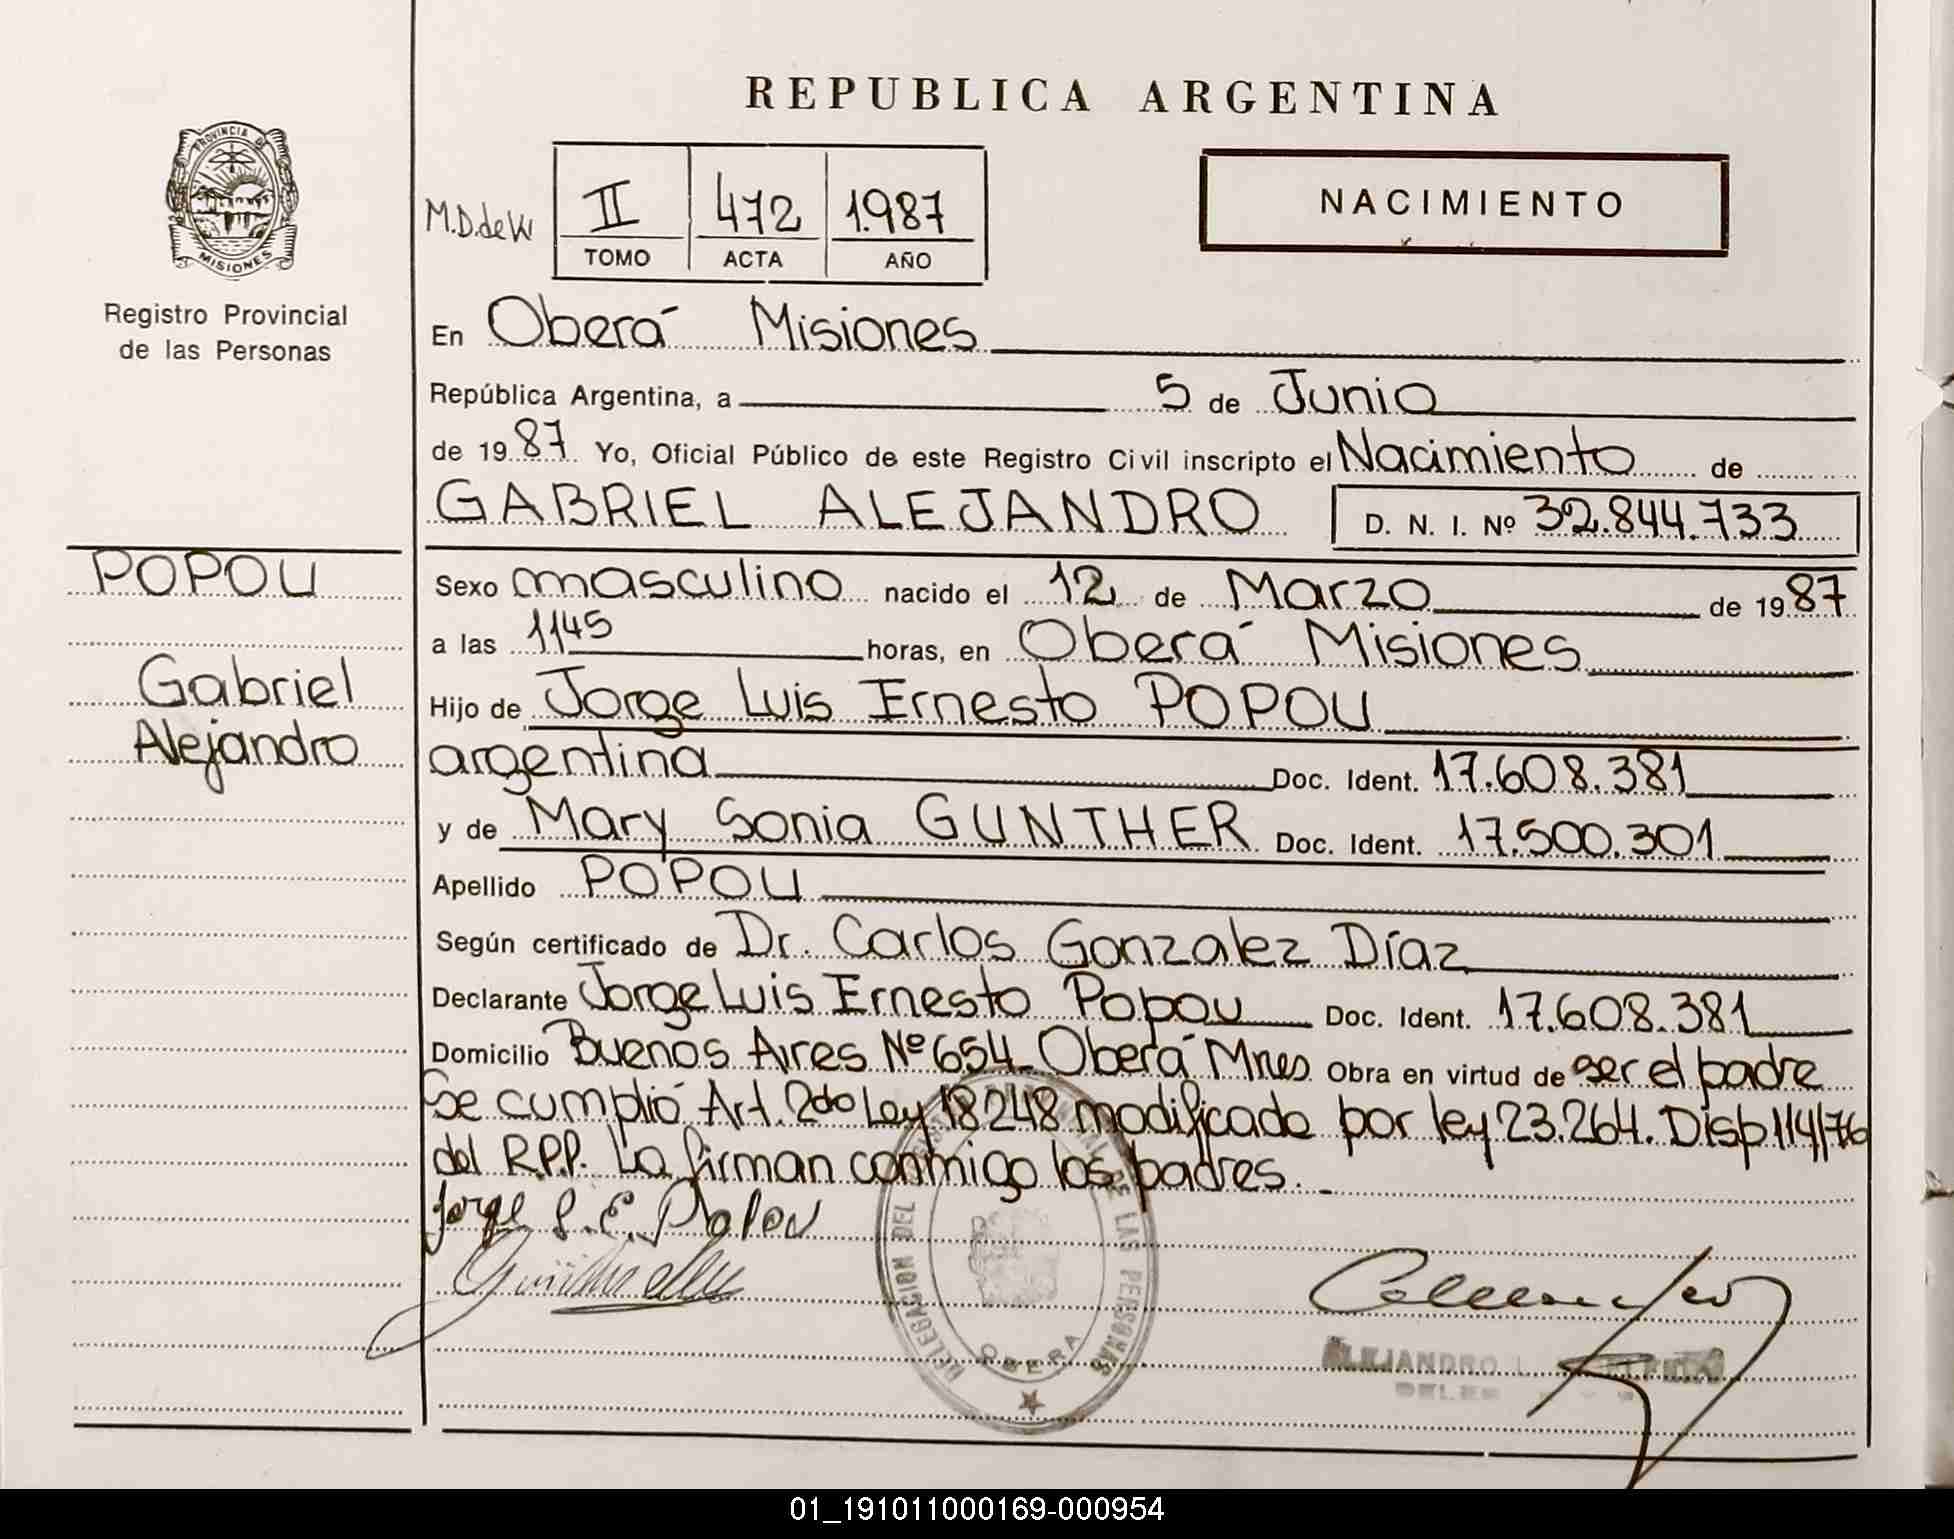 REPUBLICA ARGENTINA
PROVINCIA DE
MISIONES
Registro Provincial
de las Personas
M.D.deW
II 472 1.987
TOMO ACTA AÑO
NACIMIENTO
En Oberá Misiones
República Argentina, a 5 de Junio
de 1987 Yo, Oficial Público de este Registro Civil inscripto el Nacimiento de
GABRIEL ALEJANDRO D. N. I. Nº 32.844.733
POPOU
Gabriel
Alejandro
Sexo masculino nacido el 12 de Marzo de 1987
a las 1145 horas, en Oberá Misiones
Hijo de Jorge Luis Ernesto POPOU
argentina Doc. Ident. 17.608.381
y de Mary Sonia GUNTHER Doc. Ident. 17.500.301
Apellido POPOU
Según certificado de Dr. Carlos Gonzalez Díaz
Declarante Jorge Luis Ernesto Popou Doc. Ident. 17.608.381
Domicilio Buenos Aires Nº 654 Oberá Mnes Obra en virtud de ser el padre
Se cumplió Art. 2do Ley 18248 modificado por ley 23.264. Disp 114/76
del R.P.P. La firman conmigo los padres.
Jorge L. E. Popou
DELEGACION DEL REGISTRO PROVINCIAL DE LAS PERSONAS
OBERA
ALEJANDRO
01_191011000169-000954